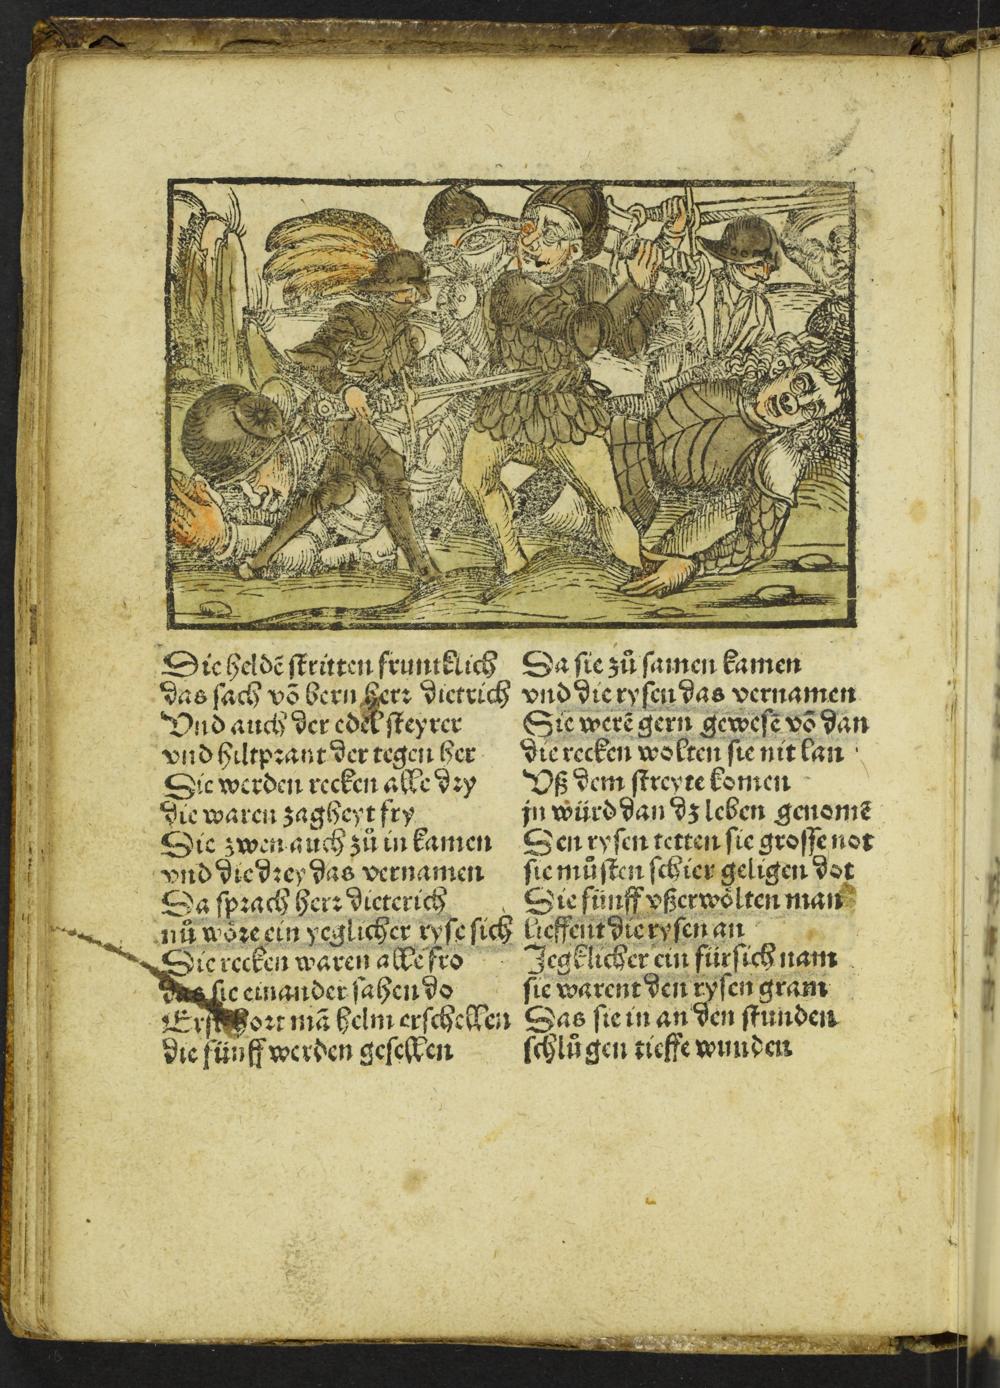 Die heldē stritten fruntklich
das sach vō bern herr dietrich
Vnd auch der edel steyrer
vnd hiltprant der tegen her
Die werden recken alle dry
die waren zagheyt fry
Die zwen auch zů in kamen
vnd die drey das vernamen
Da sprach herr dieterich
nů wöre ein yeglicher ryse sich
Die recken waren alle fro
das sie einander sahen do
Erst hort mā helm erschellen
die fünff werden gesellen
Da sie zů samen kamen
vnd die rysen das vernamen
Sie werē gern gewesē vō dan
die recken wolten sie nit lan
Vß dem streyte komen
jn würd dan dz leben genomē
Den rysen tetten sie grosse not
sie můsten schier geligen dot
Die fünff vßerwölten man
lieffent die rysen an
Jegklicher ein für sich nam
sie warent den rysen gram
Das sie in an den stunden
schlůgen tieffe wunden